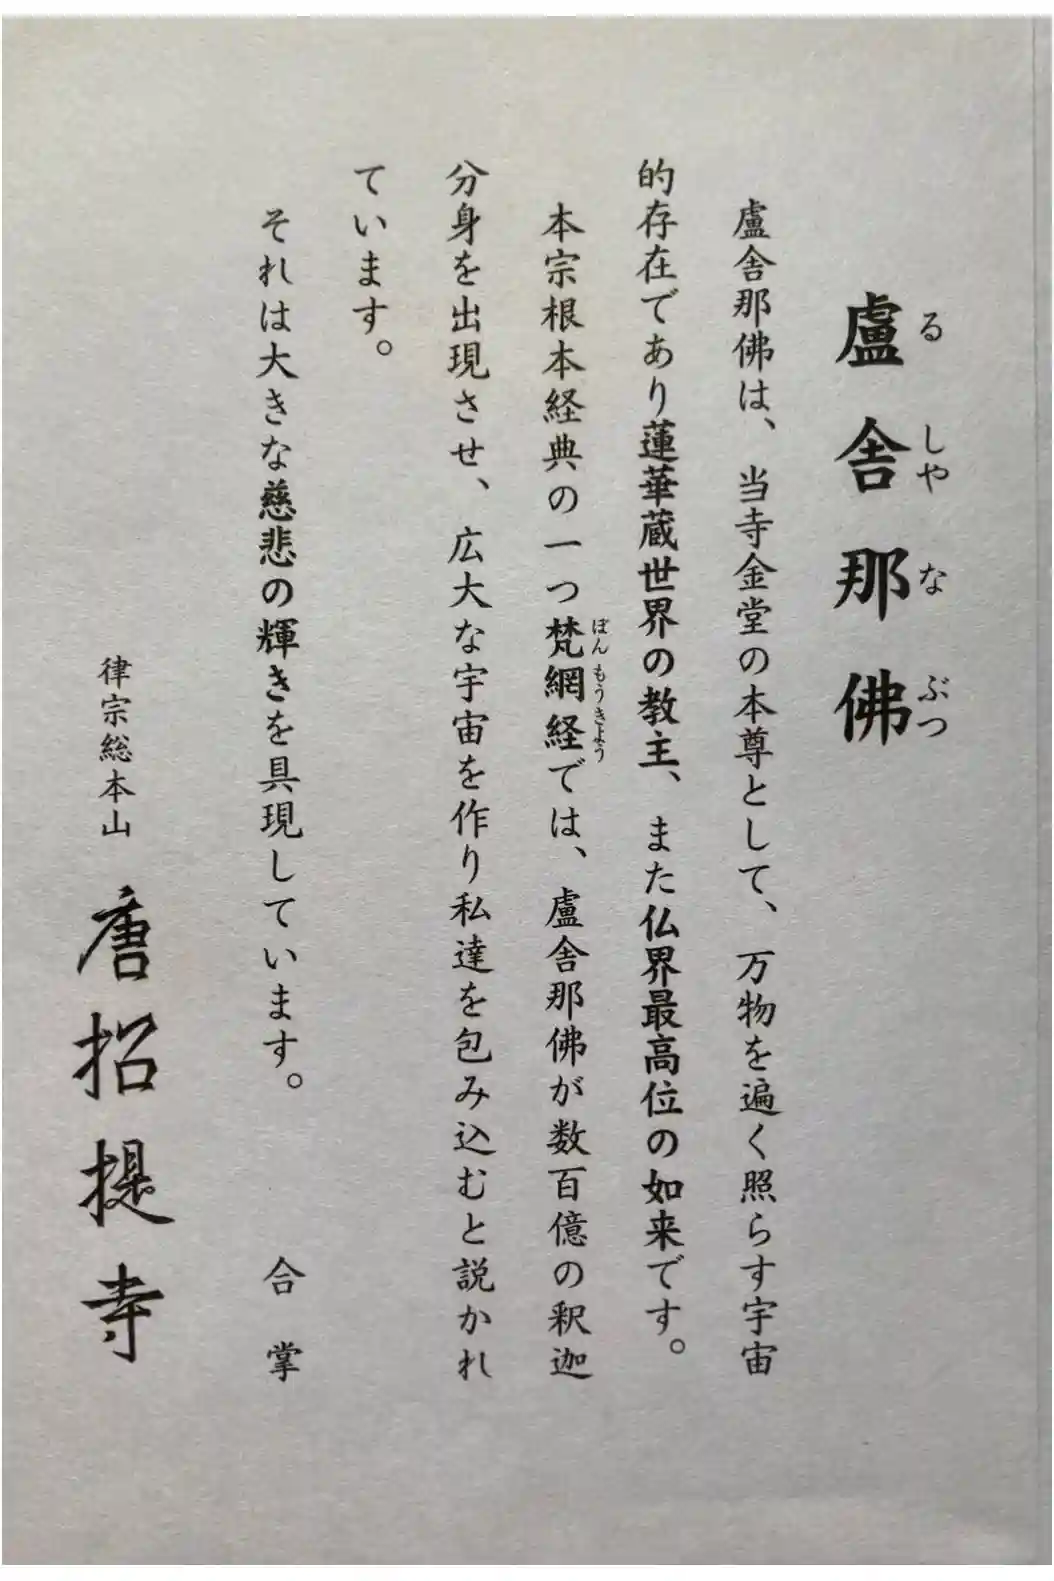 盧舎那佛
るしやなぶつ
盧舎那佛は、当寺金堂の本尊として、万物を遍く照らす宇宙
的存在であり蓮華蔵世界の教主、また仏界最高位の如来です。
本宗根本経典の一つ梵網経では、盧舎那佛が数百億の釈迦
ぼんもうきよう
分身を出現させ、広大な宇宙を作り私達を包み込むと説かれ
ています。
それは大きな慈悲の輝きを具現しています。
合掌
律宗総本山 唐招提寺